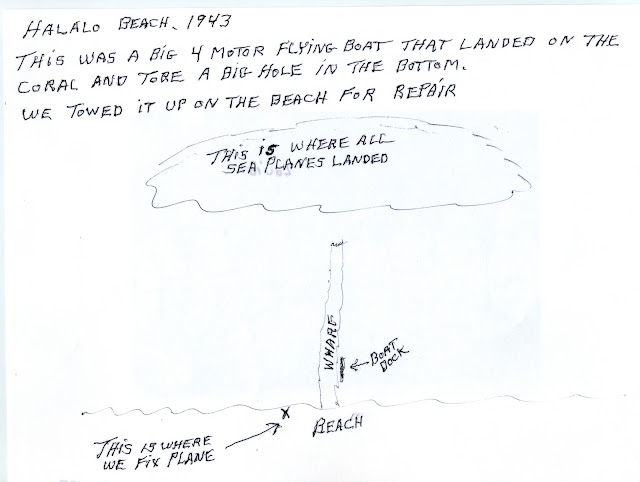 HALALO BEACH. 1943
THIS WAS A BIG 4 MOTOR FLYING BOAT THAT LANDED ON THE
CORAL AND TORE A BIG HOLE IN THE BOTTOM.
WE TOWED IT UP ON THE BEACH FOR REPAIR
THIS IS WHERE ALL
SEA PLANES LANDED
WHARF
BOAT
DOCK
BEACH
X
THIS IS WHERE
WE FIX PLANE